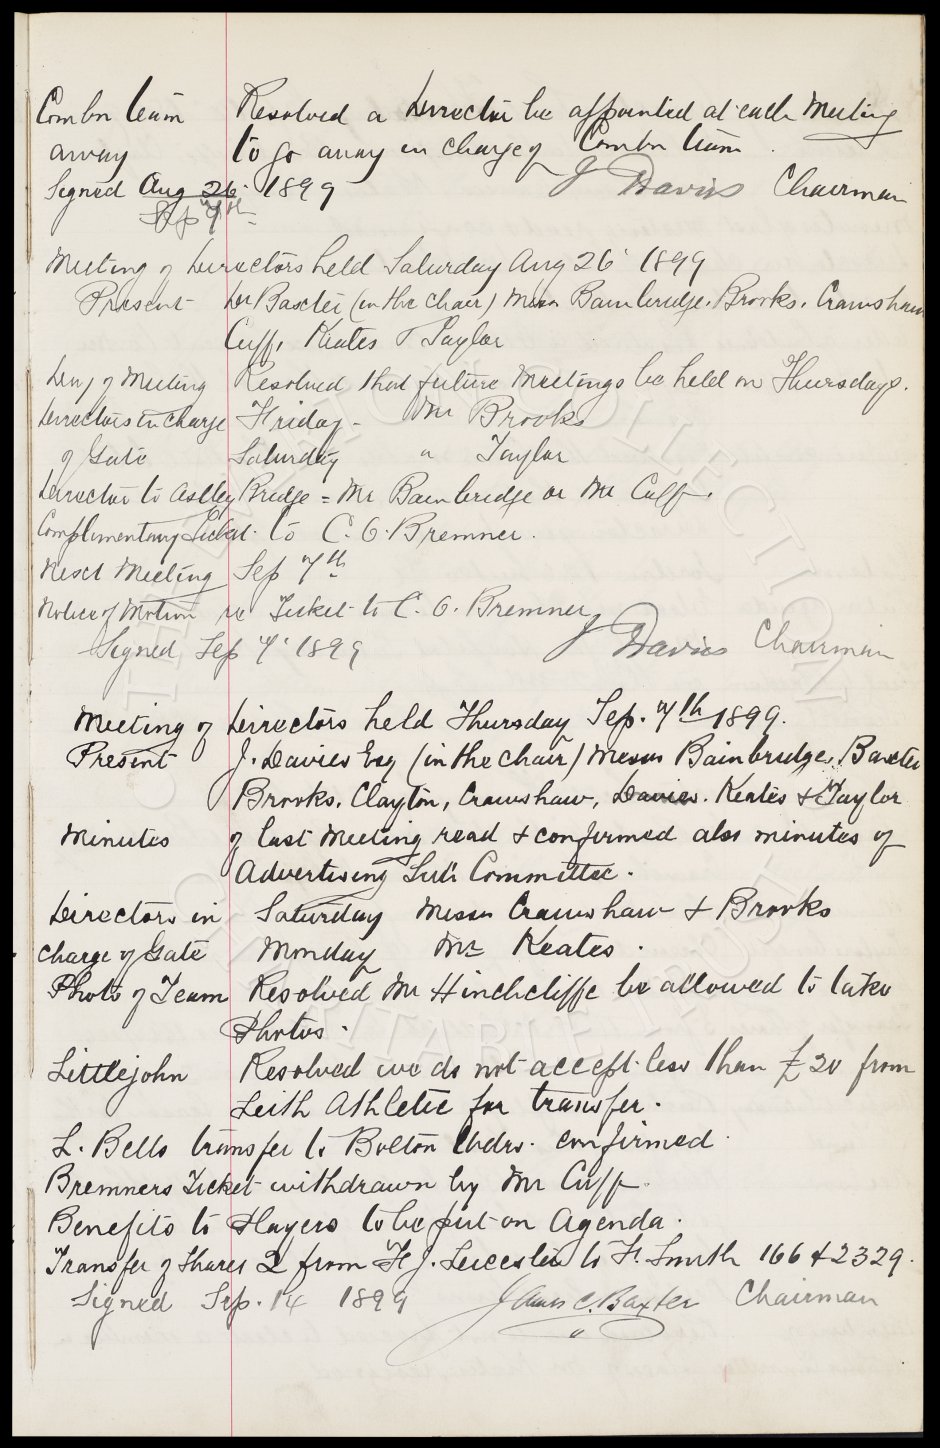 Combn team Resolved a Director be appointed at each Meeting
away to go away in charge of Combn team.
Signed Aug 26. 1899 J Davies Chairman
Sep 7th
Meeting of Directors held Saturday Aug 26 1899
Present Dr Baxter (in the chair) Messrs Bainbridge, Brooks, Crawshaw
Cuff, Keates & Taylor
Day of Meeting Resolved that future Meetings be held on Thursdays.
Directors in charge Friday - Mr Brooks
of Gate Saturday " Taylor
Director to Astley Bridge = Mr Bainbridge or Mr Cuff.
Complimentary Ticket to C. O. Bremner.
Next Meeting Sep 7th
Notice of Motion re Ticket to C. O. Bremner
Signed Sep 7. 1899 J Davies Chairman
Meeting of Directors held Thursday Sep. 7th 1899.
Present J. Davies Esq (in the chair) Messrs Bainbridge, Baxter
Brooks, Clayton, Crawshaw, Davies. Keates & Taylor
Minutes of last Meeting read & confirmed also minutes of
Advertising Sub Committee.
Directors in Saturday Messrs Crawshaw & Brooks
charge of Gate Monday Mr Keates.
Photo of Team Resolved Mr Hinchcliffe be allowed to take
Photos.
Littlejohn Resolved we do not accept less than £20 from
Leith Athletic for transfer.
L. Bells transfer to Bolton Wdrs. confirmed.
Bremners Ticket withdrawn by Mr Cuff.
Benefits to Players to be put on Agenda.
Transfer of Shares 2 from F J. Leicester to F. Smith 166 & 2329.
Signed Sep. 14 1899 James C. Baxter Chairman